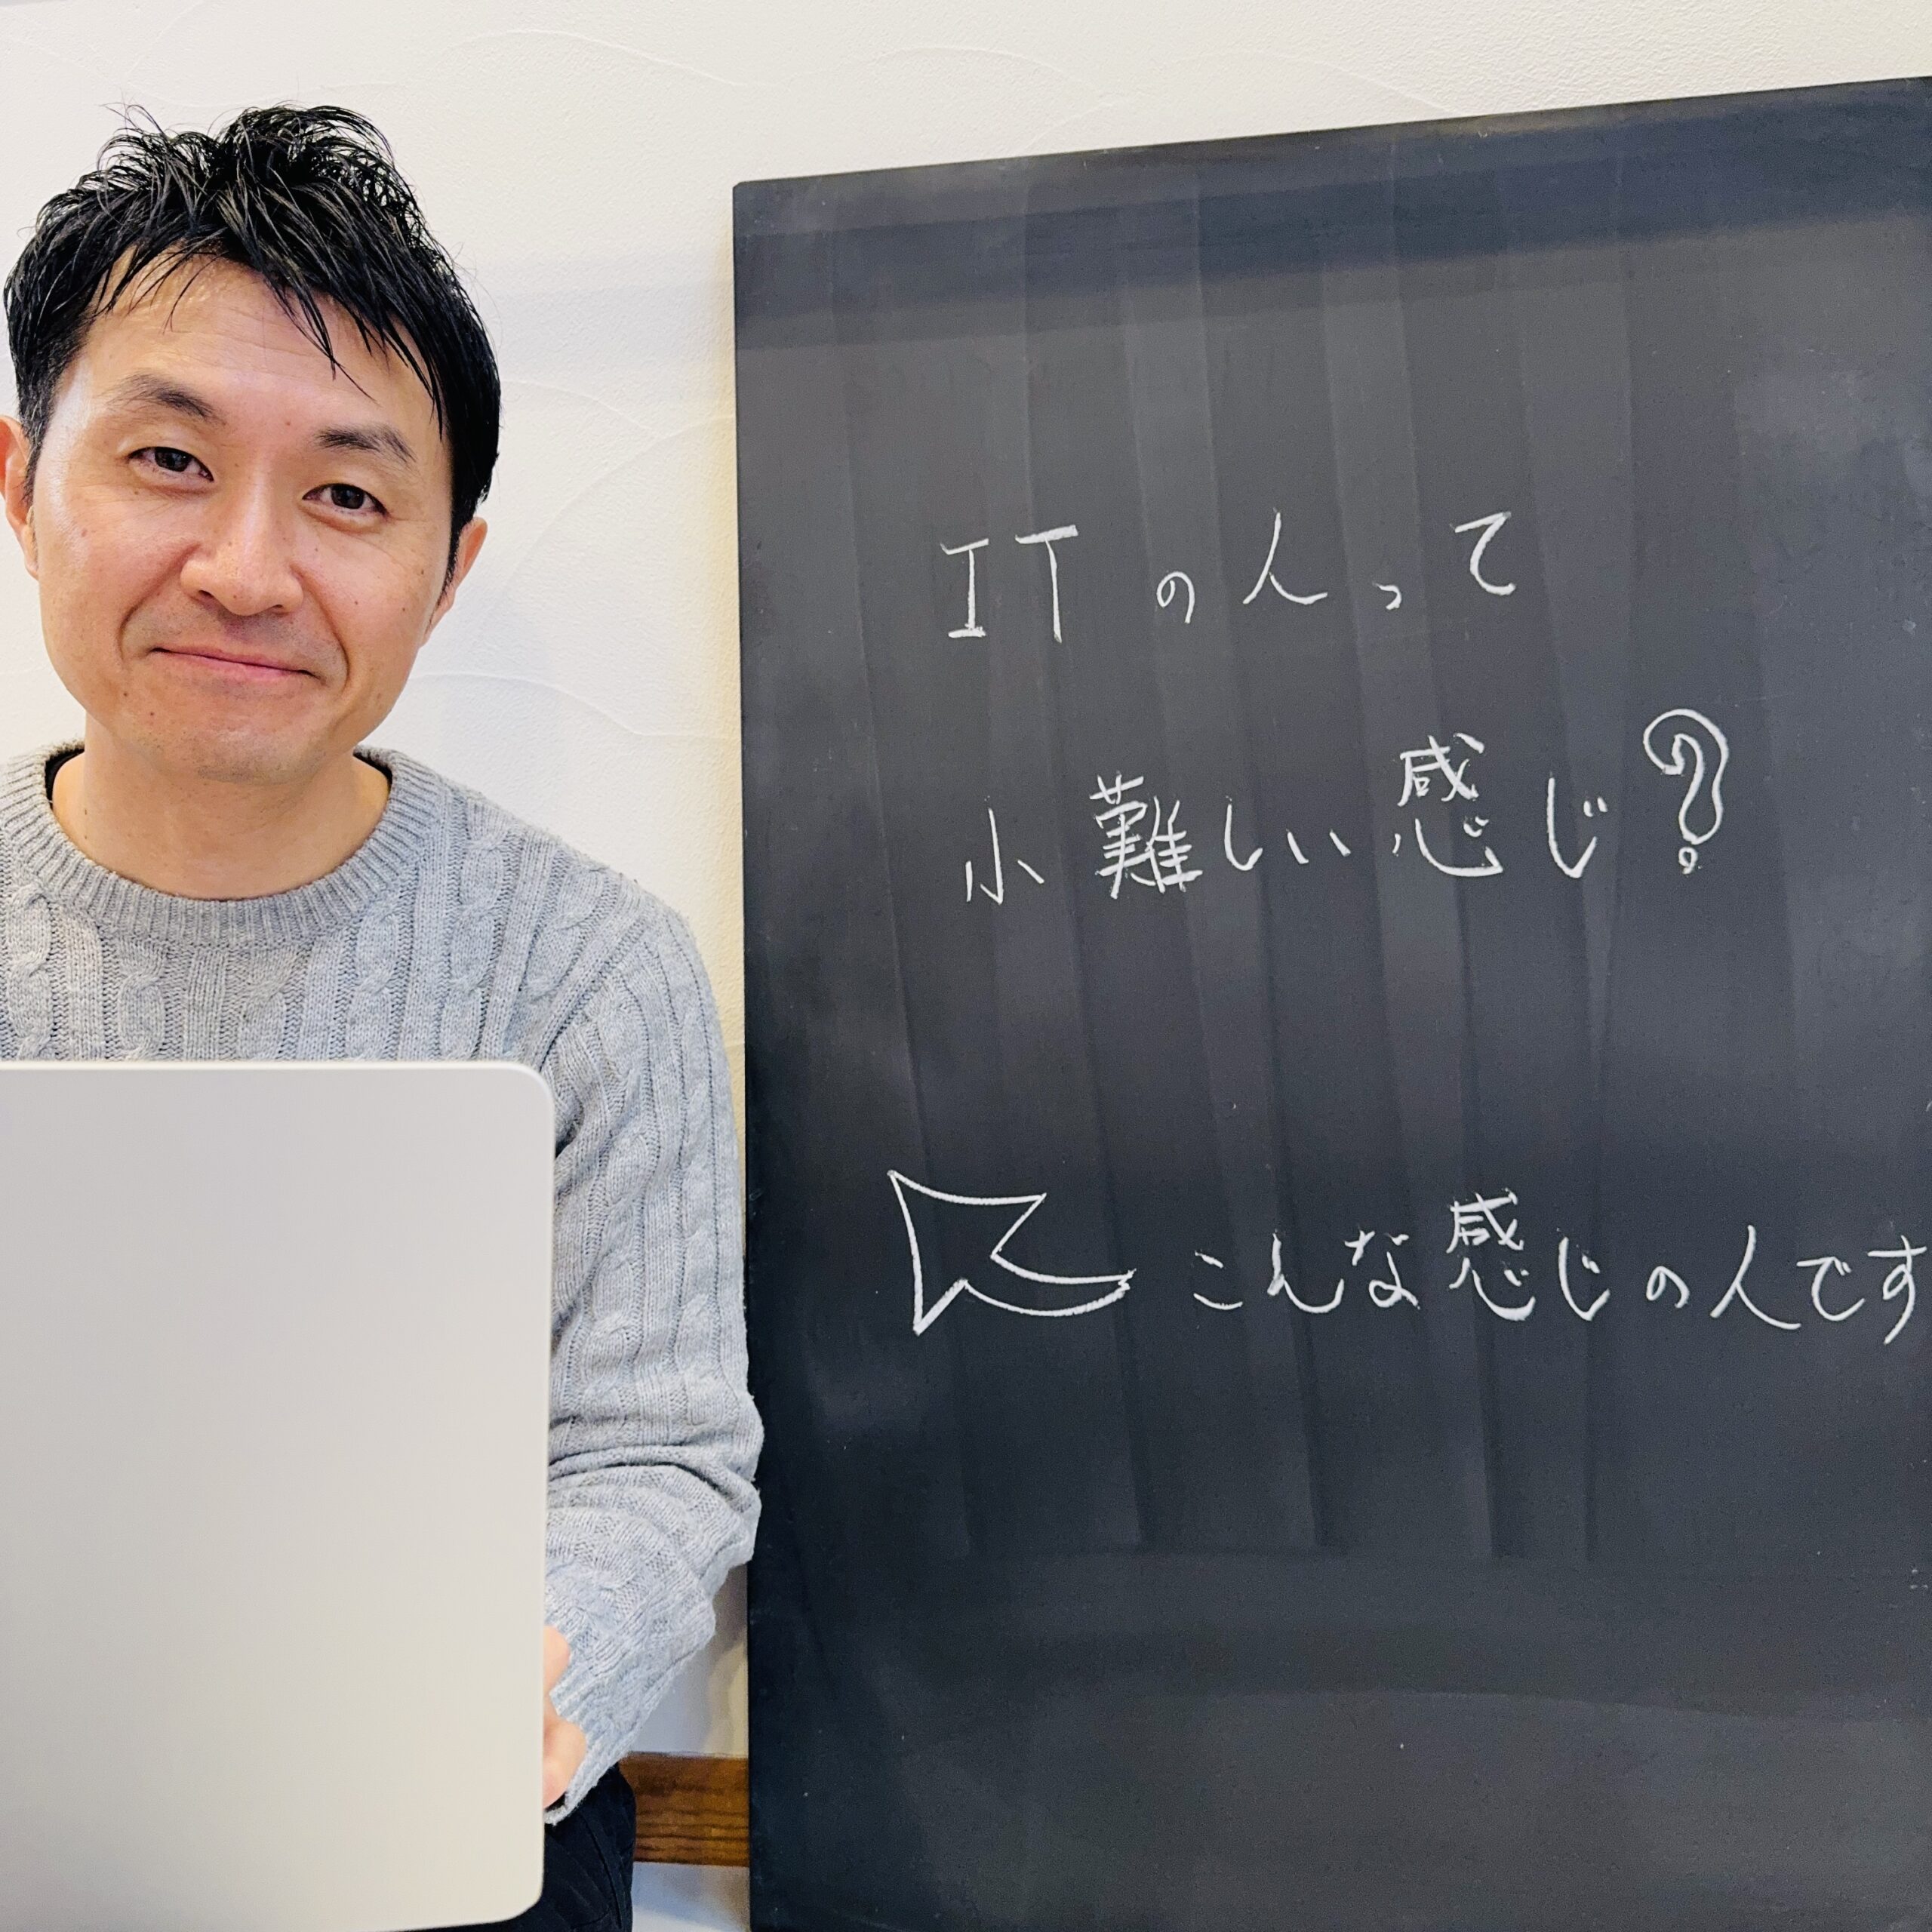 ITの人って
小難しい感じ？
こんな感じの人です